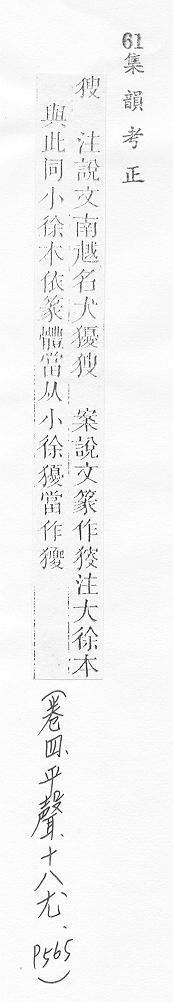 61集韻考正
獀 注說文南越名犬獶獀 案說文篆作注大徐本
與此同小徐本依篆體當从小徐獶當作獿
(卷四、平聲、十八尤、P565)